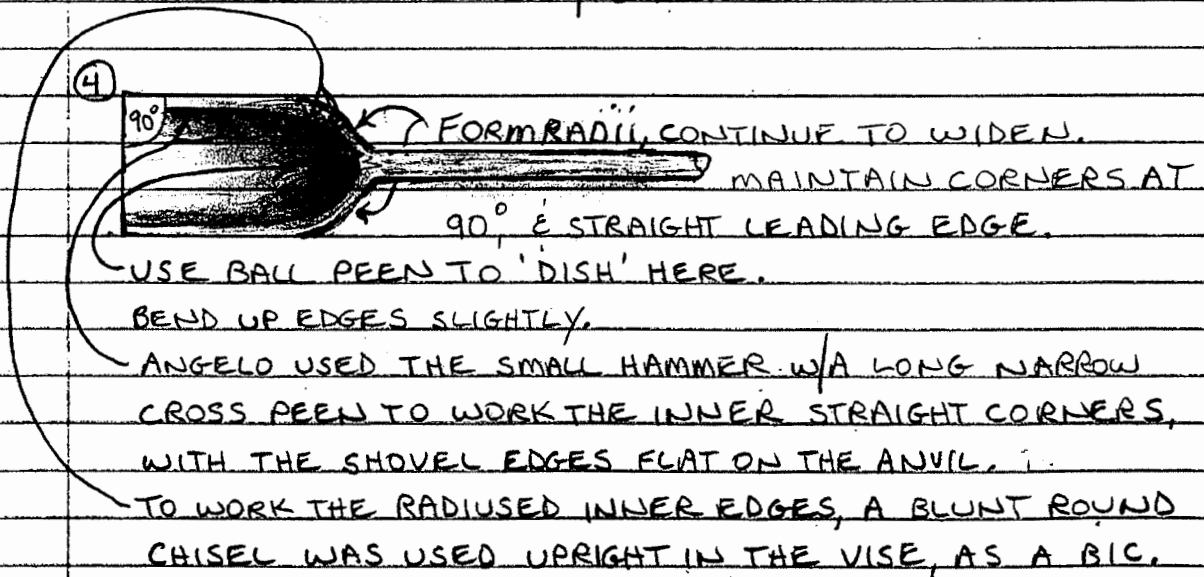 4
90° FORM RADII, CONTINUE TO WIDEN.
MAINTAIN CORNERS AT
90°, & STRAIGHT LEADING EDGE.
USE BALL PEEN TO 'DISH' HERE.
BEND UP EDGES SLIGHTLY.
ANGELO USED THE SMALL HAMMER W/A LONG NARROW
CROSS PEEN TO WORK THE INNER STRAIGHT CORNERS,
WITH THE SHOVEL EDGES FLAT ON THE ANVIL.
TO WORK THE RADIUSED INNER EDGES, A BLUNT ROUND
CHISEL WAS USED UPRIGHT IN THE VISE, AS A BIC.